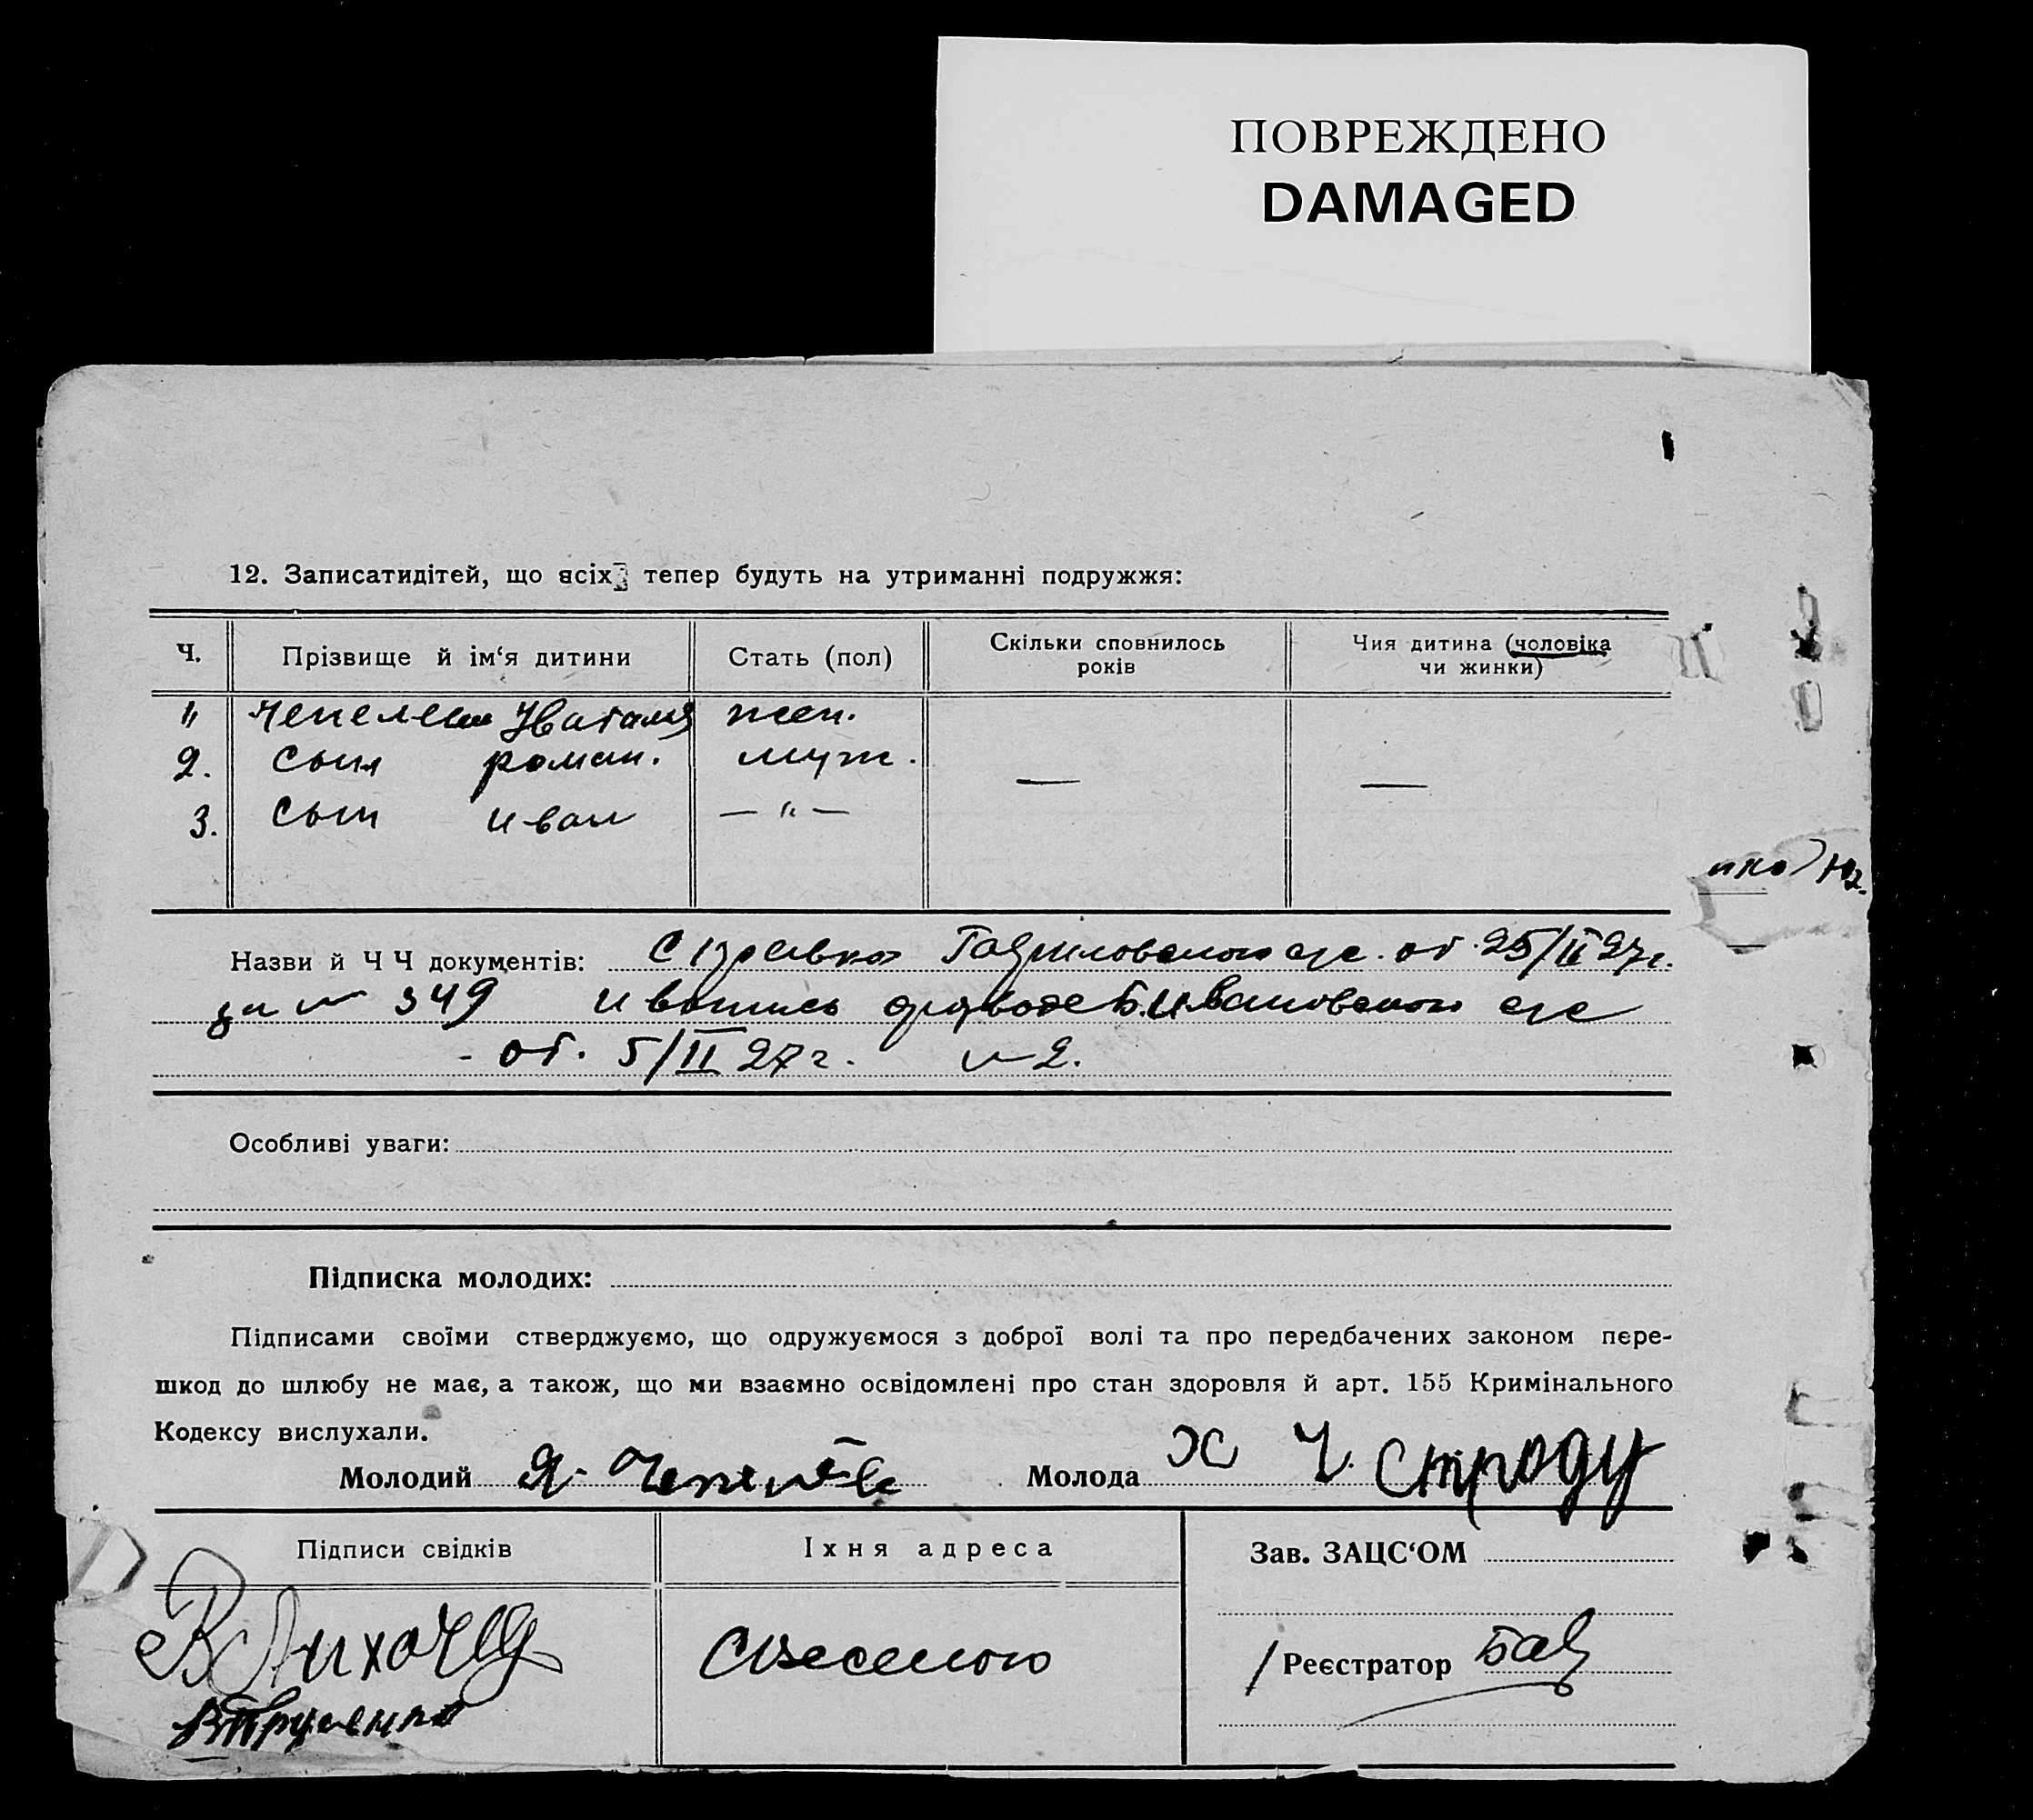 ПОВРЕЖДЕНО
DAMAGED
12. Записатидітей, що всіх тепер будуть на утриманні подружжя:
Ч. Прізвище й ім‘я дитини Стать (пол) Скільки сповнилось років Чия дитина (чоловіка чи жинки)
1, Чепелев Наталия жен.
2. Сын роман. муж.
3. Сын иван — „ —
Назви й Ч Ч документів: Справка с/с. от 25/II 27г.
за № 349 и вапись о разводе с/с
- от. 5/II 27г. №2.
Особливі уваги:
Підписка молодих:
Підписами своїми стверджуємо, що одружуємося з доброї волі та про передбачених законом пере-
шкод до шлюбу не має, а також, що ми взаємно освідомлені про стан здоровля й арт. 155 Кримінального
Кодексу вислухали.
Молодий Я. Молода Х Ч. Строду
Підписи свідків Їхня адреса Зав. ЗАЦС‘ОМ
Реєстратор